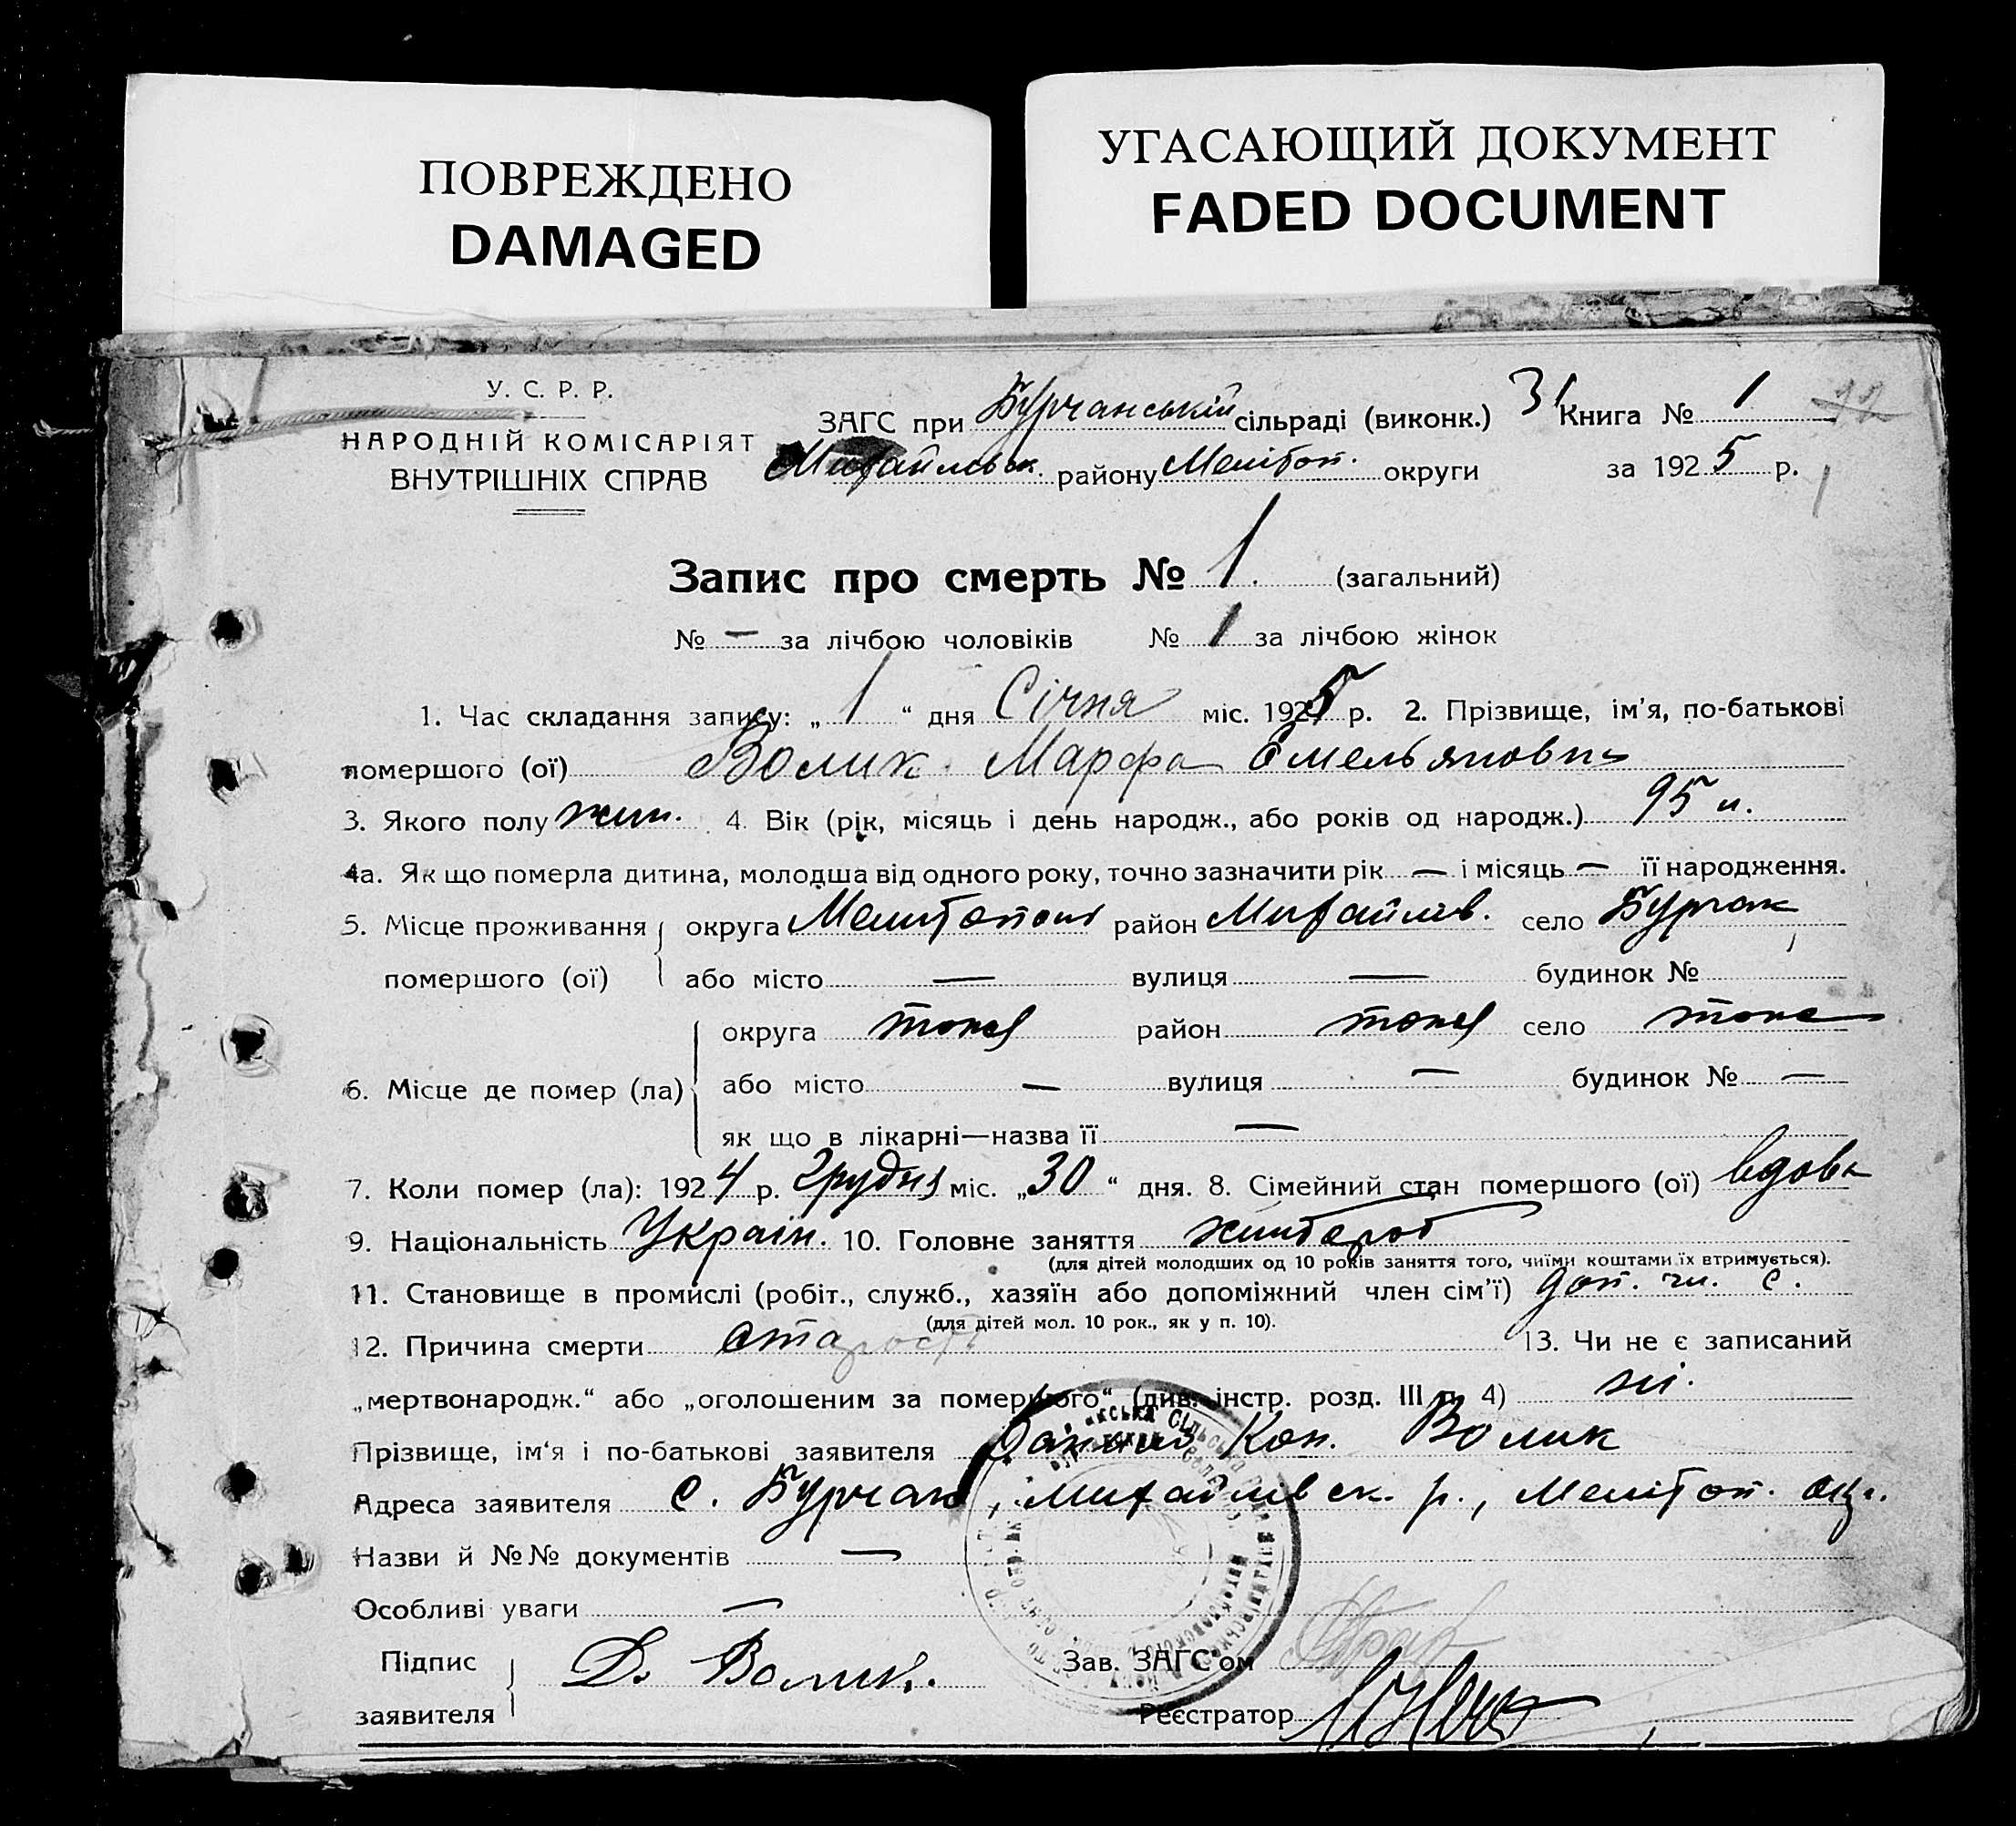 ПОВРЕЖДЕНО
DAMAGED
УГАСАЮЩИЙ ДОКУМЕНТ
FADED DOCUMENT
У. С. Р. Р.
НАРОДНІЙ КОМІСАРІЯТ
ВНУТРІШНІХ СПРАВ
ЗАГС при Бурчанській сільраді (виконк.) 31 Книга № 1
Михайлівськ. району Меліtоп. округи за 1925 р.
Запис про смерть № 1. (загальний)
№ — за лічбою чоловіків № 1 за лічбою жінок
1. Час складання запису: „ 1 “ дня Січня міс. 1925 р. 2. Прізвище, ім'я, по-батькові
помершого (ої) Волик Марфа Омельяновна
3. Якого полу жин. 4. Вік (рік, місяць і день народж., або років од народж.) 95 л.
4а. Як що померла дитина, молодша від одного року, точно зазначити рік — і місяць — її народження.
5. Місце проживання округа район Михайлів. село Бурчак
помершого (ої) або місто — вулиця — будинок №
округа тоже район тоже село тоже
6. Місце де помер (ла) або місто — вулиця — будинок № —
як що в лікарні—назва її —
7. Коли помер (ла): 1924 р. Грудня міс. „30“ дня. 8. Сімейний стан помершого (ої) вдова
9. Національність Україн. 10. Головне заняття
(для дітей молодших од 10 років заняття того, чиїми коштами їх втримується).
11. Становище в промислі (робіт., служб., хазяїн або допоміжний член сім'ї) доп. чл. с.
(для дітей мол. 10 рок., як у п. 10).
12. Причина смерти старость 13. Чи не є записаний
„мертвонародж.“ або „оголошеним за помершого“ (див. інстр. розд. III п. 4) ні.
Прізвище, ім'я і по-батькові заявителя Кон. Волик
Адреса заявителя с. Бурчак, Михайлівськ. р., Меліtоп. окр.
Назви й №№ документів —
Особливі уваги —
Підпис
заявителя Д. Волик.
Зав. ЗАГС'ом
Реєстратор